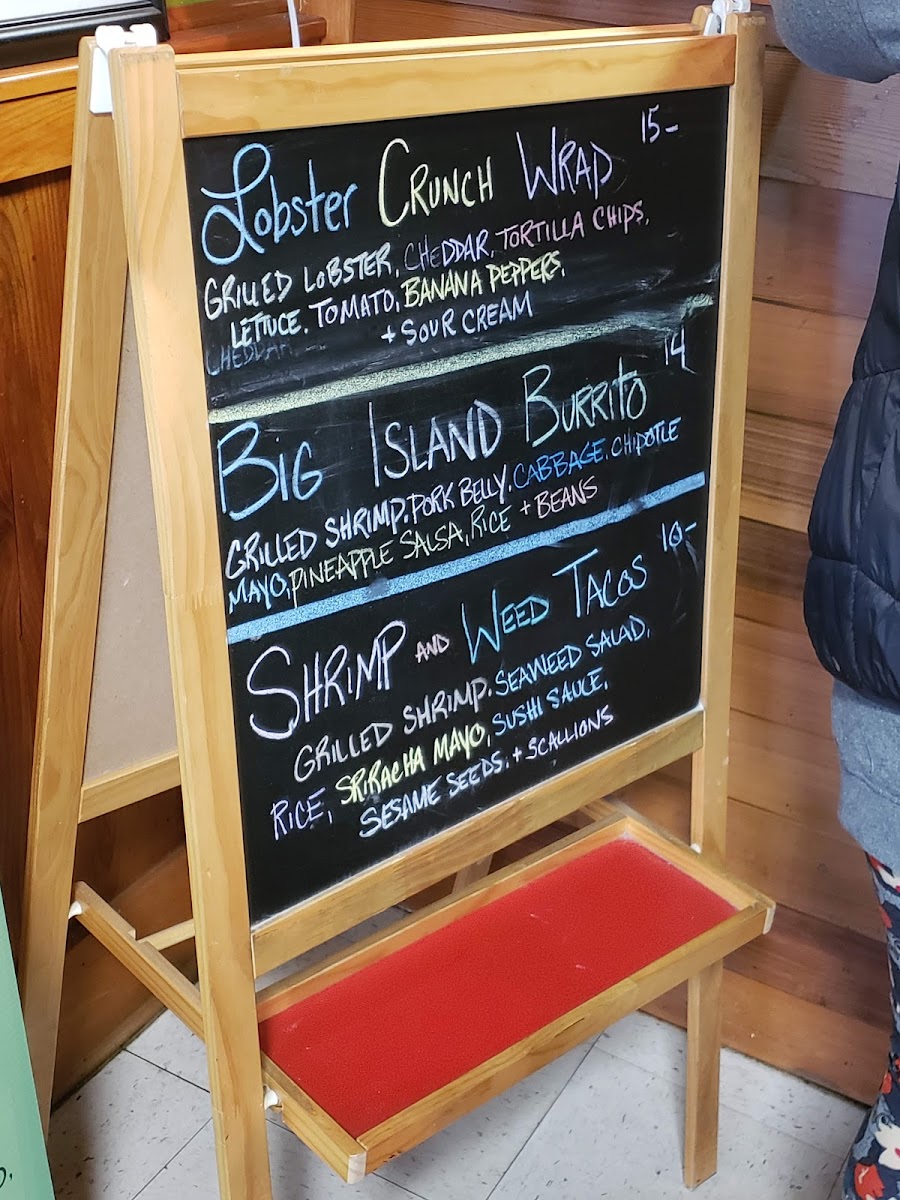 Lobster Crunch Wrap 15-
Grilled Lobster, Cheddar, Tortilla Chips,
Lettuce, Tomato, Banana Peppers,
+ Sour Cream
Cheddar
Big Island Burrito 14
Grilled Shrimp, Pork Belly, Cabbage, Chipotle
Mayo, Pineapple Salsa, Rice + Beans
Shrimp and Weed Tacos 10-
Grilled Shrimp, Seaweed Salad,
Rice, Sriracha Mayo, Sushi Sauce,
Sesame Seeds, + Scallions